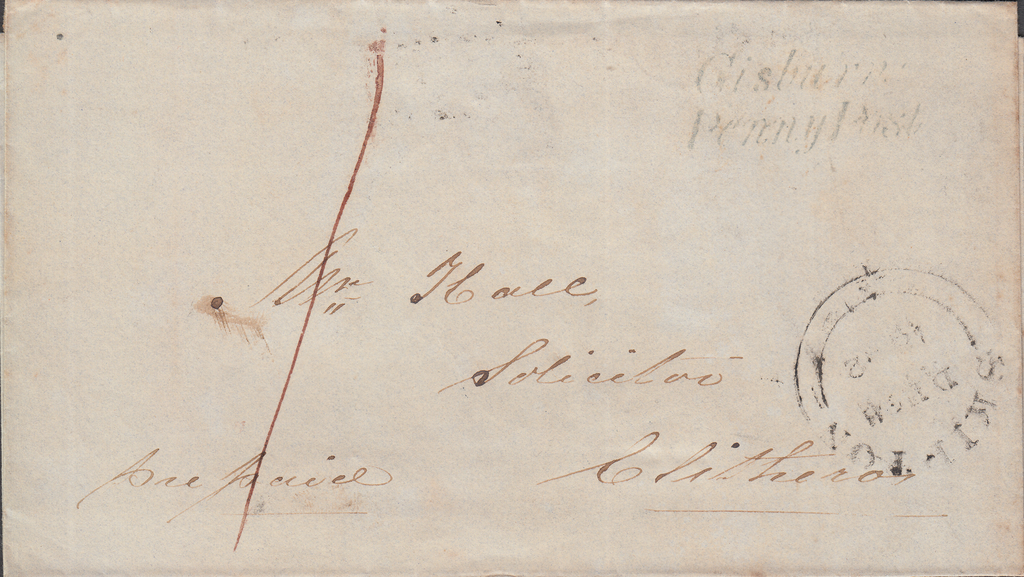 Gisburn
Penny Post
Mr Hall,
Solicitor
Clitheroe
pre paid
SKIPTON